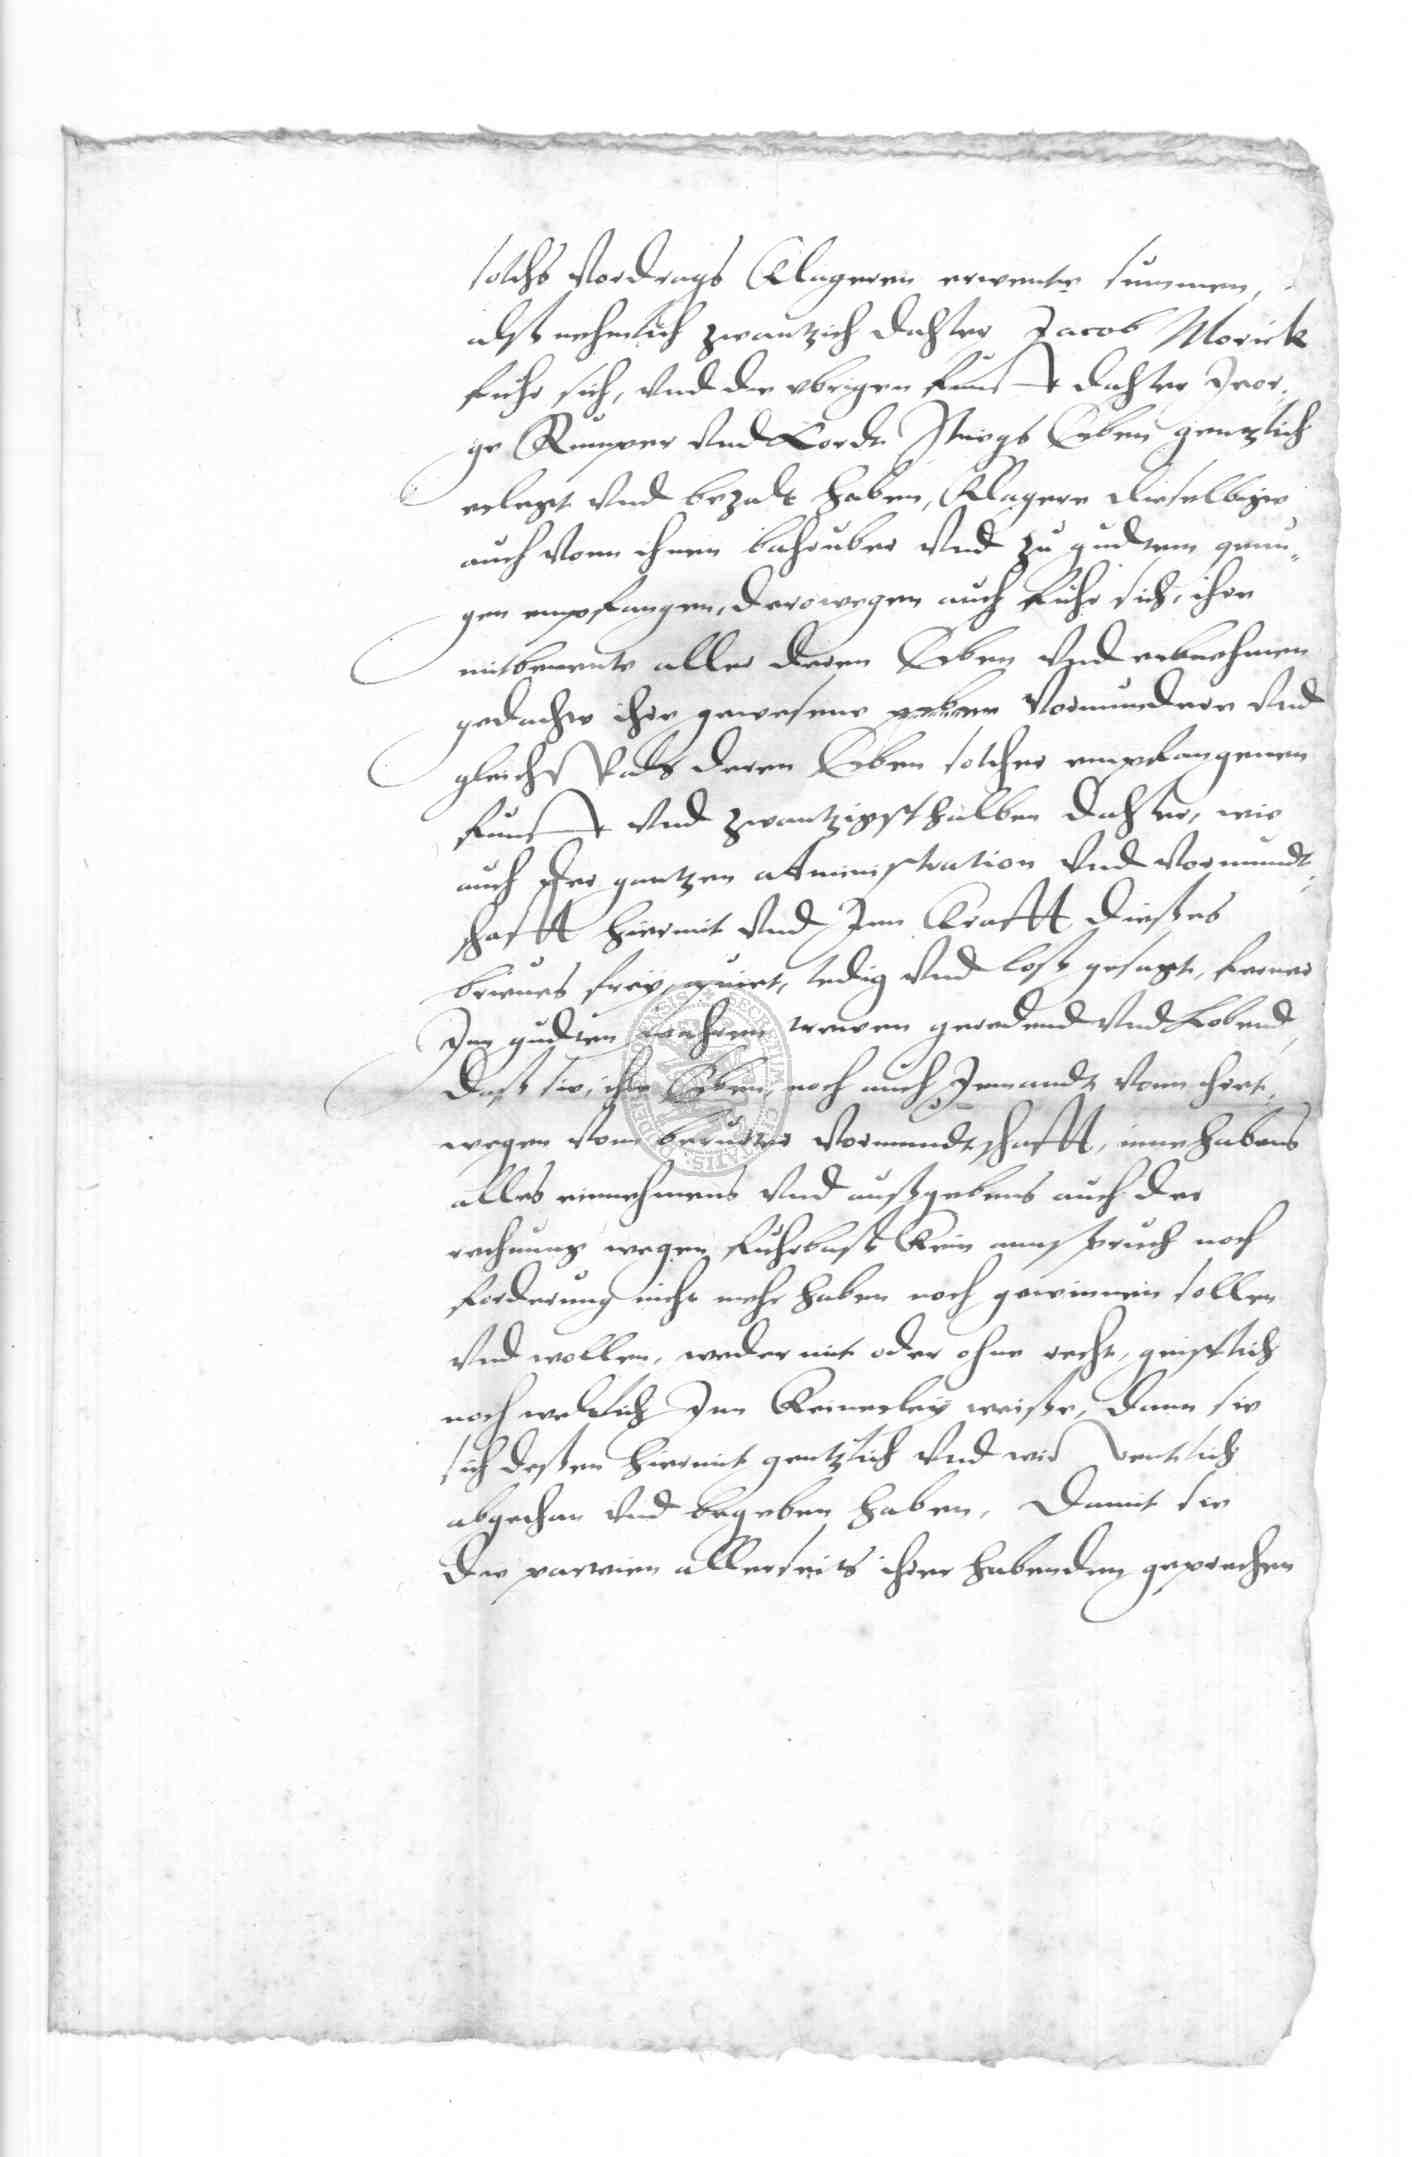 solchs Vordrags Klageren erwente summen,
alß nehmlich zwantzich dahler Jacob Morick
fuhr sich, vnd die vbrigen funff dahler Jeor¬
ge Kumper vnd Cordt Erben gentzlich
erlegt vnd bezalt haben, Klagere dieselbige
auch vonn ihnen bahruber vnd zu gudtem genu¬
gen empfangen, derowegen auch fuhr sich, ihre
mitbenente aller deren Erben vnd erbnehmen
gedachte ihre gewesene Vormundere vnd
gleichsfals deren Erben solcher empfangenen
funff vnd zwantzigsthalben dahler, wie
auch der gantzen administration vnd Vormundt¬
schafft hiermit vnd Inn Krafft dießes
brieues frey, quiet, ledig vnd loß gesagt, ferner
Inn gudten wahren trewen geredend vnd Lobend,
Daß sie, ihre Erben, noch auch Jemandt vonn ihret¬
wegen vonn berurter Vormundtschafft, innehabens
alles einnehmens vnd außgebens auch der
rechnung wegen fuhrbaß Kein annspruch noch
forderung nicht mehr haben noch gewinnen sollen
vnd wollen, weder mit oder ohne recht, geistlich
noch weltlich Inn Keinerley weiße, Dann sie
sich deßen hiermit gentzlich vnd
abgethan vnd begeben haben, Damit sie
die partien allerseits ihrer habenden geprechen
SECRETUM CIVITATIS